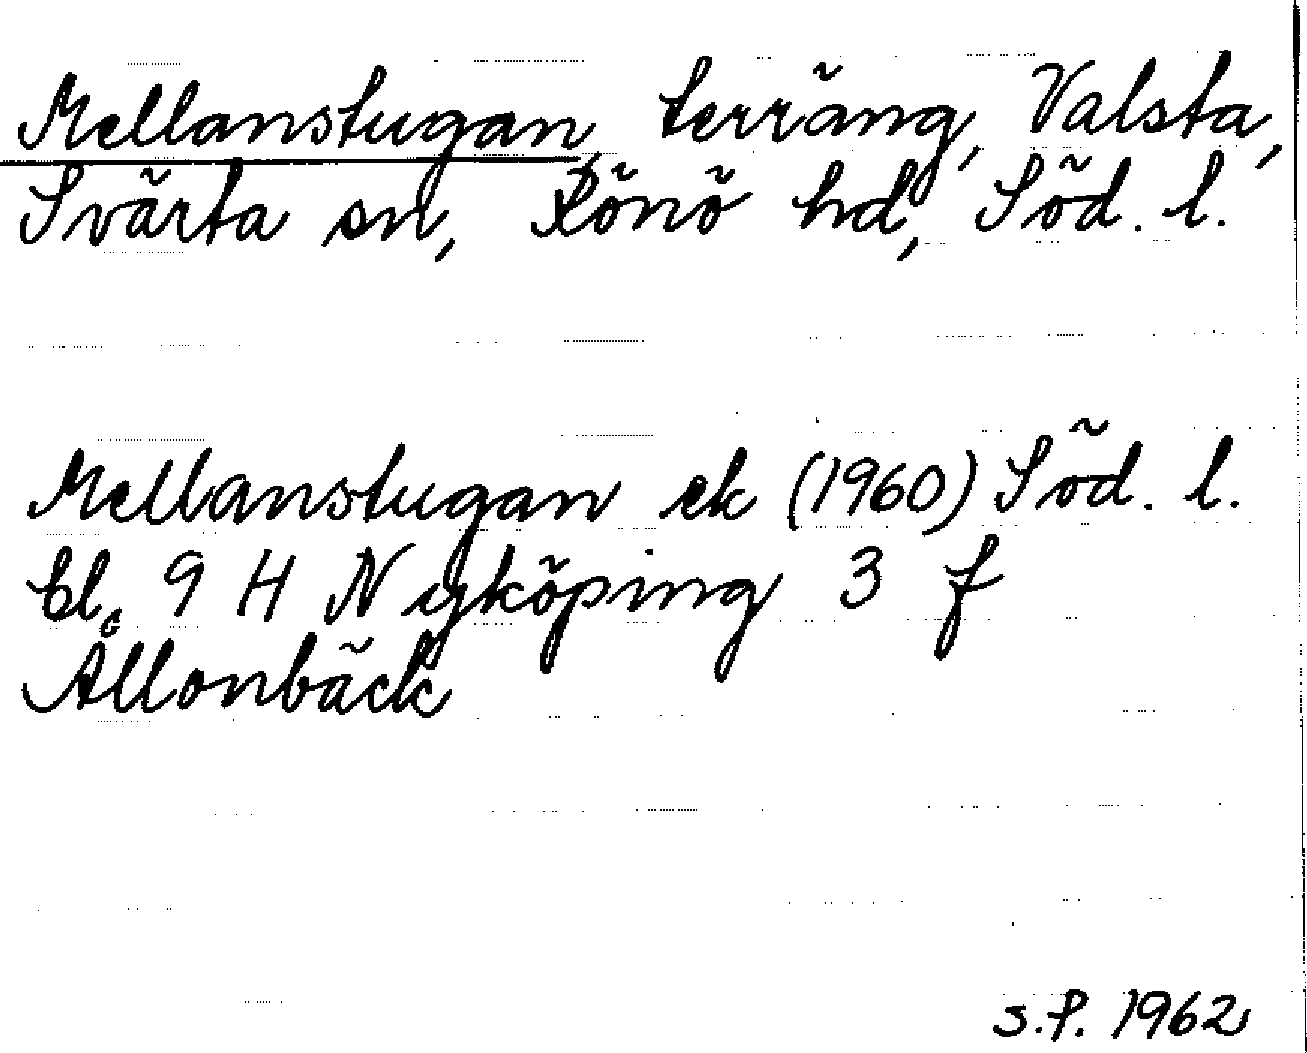 Mellanstugan, terräng, Valsta,
Svärta sn, Rönö hd, Söd. l.
Mellanstugan ek (1960) Söd. l.
bl. 9 H Nyköping 3 f
Ållonbäck
S.P. 1962